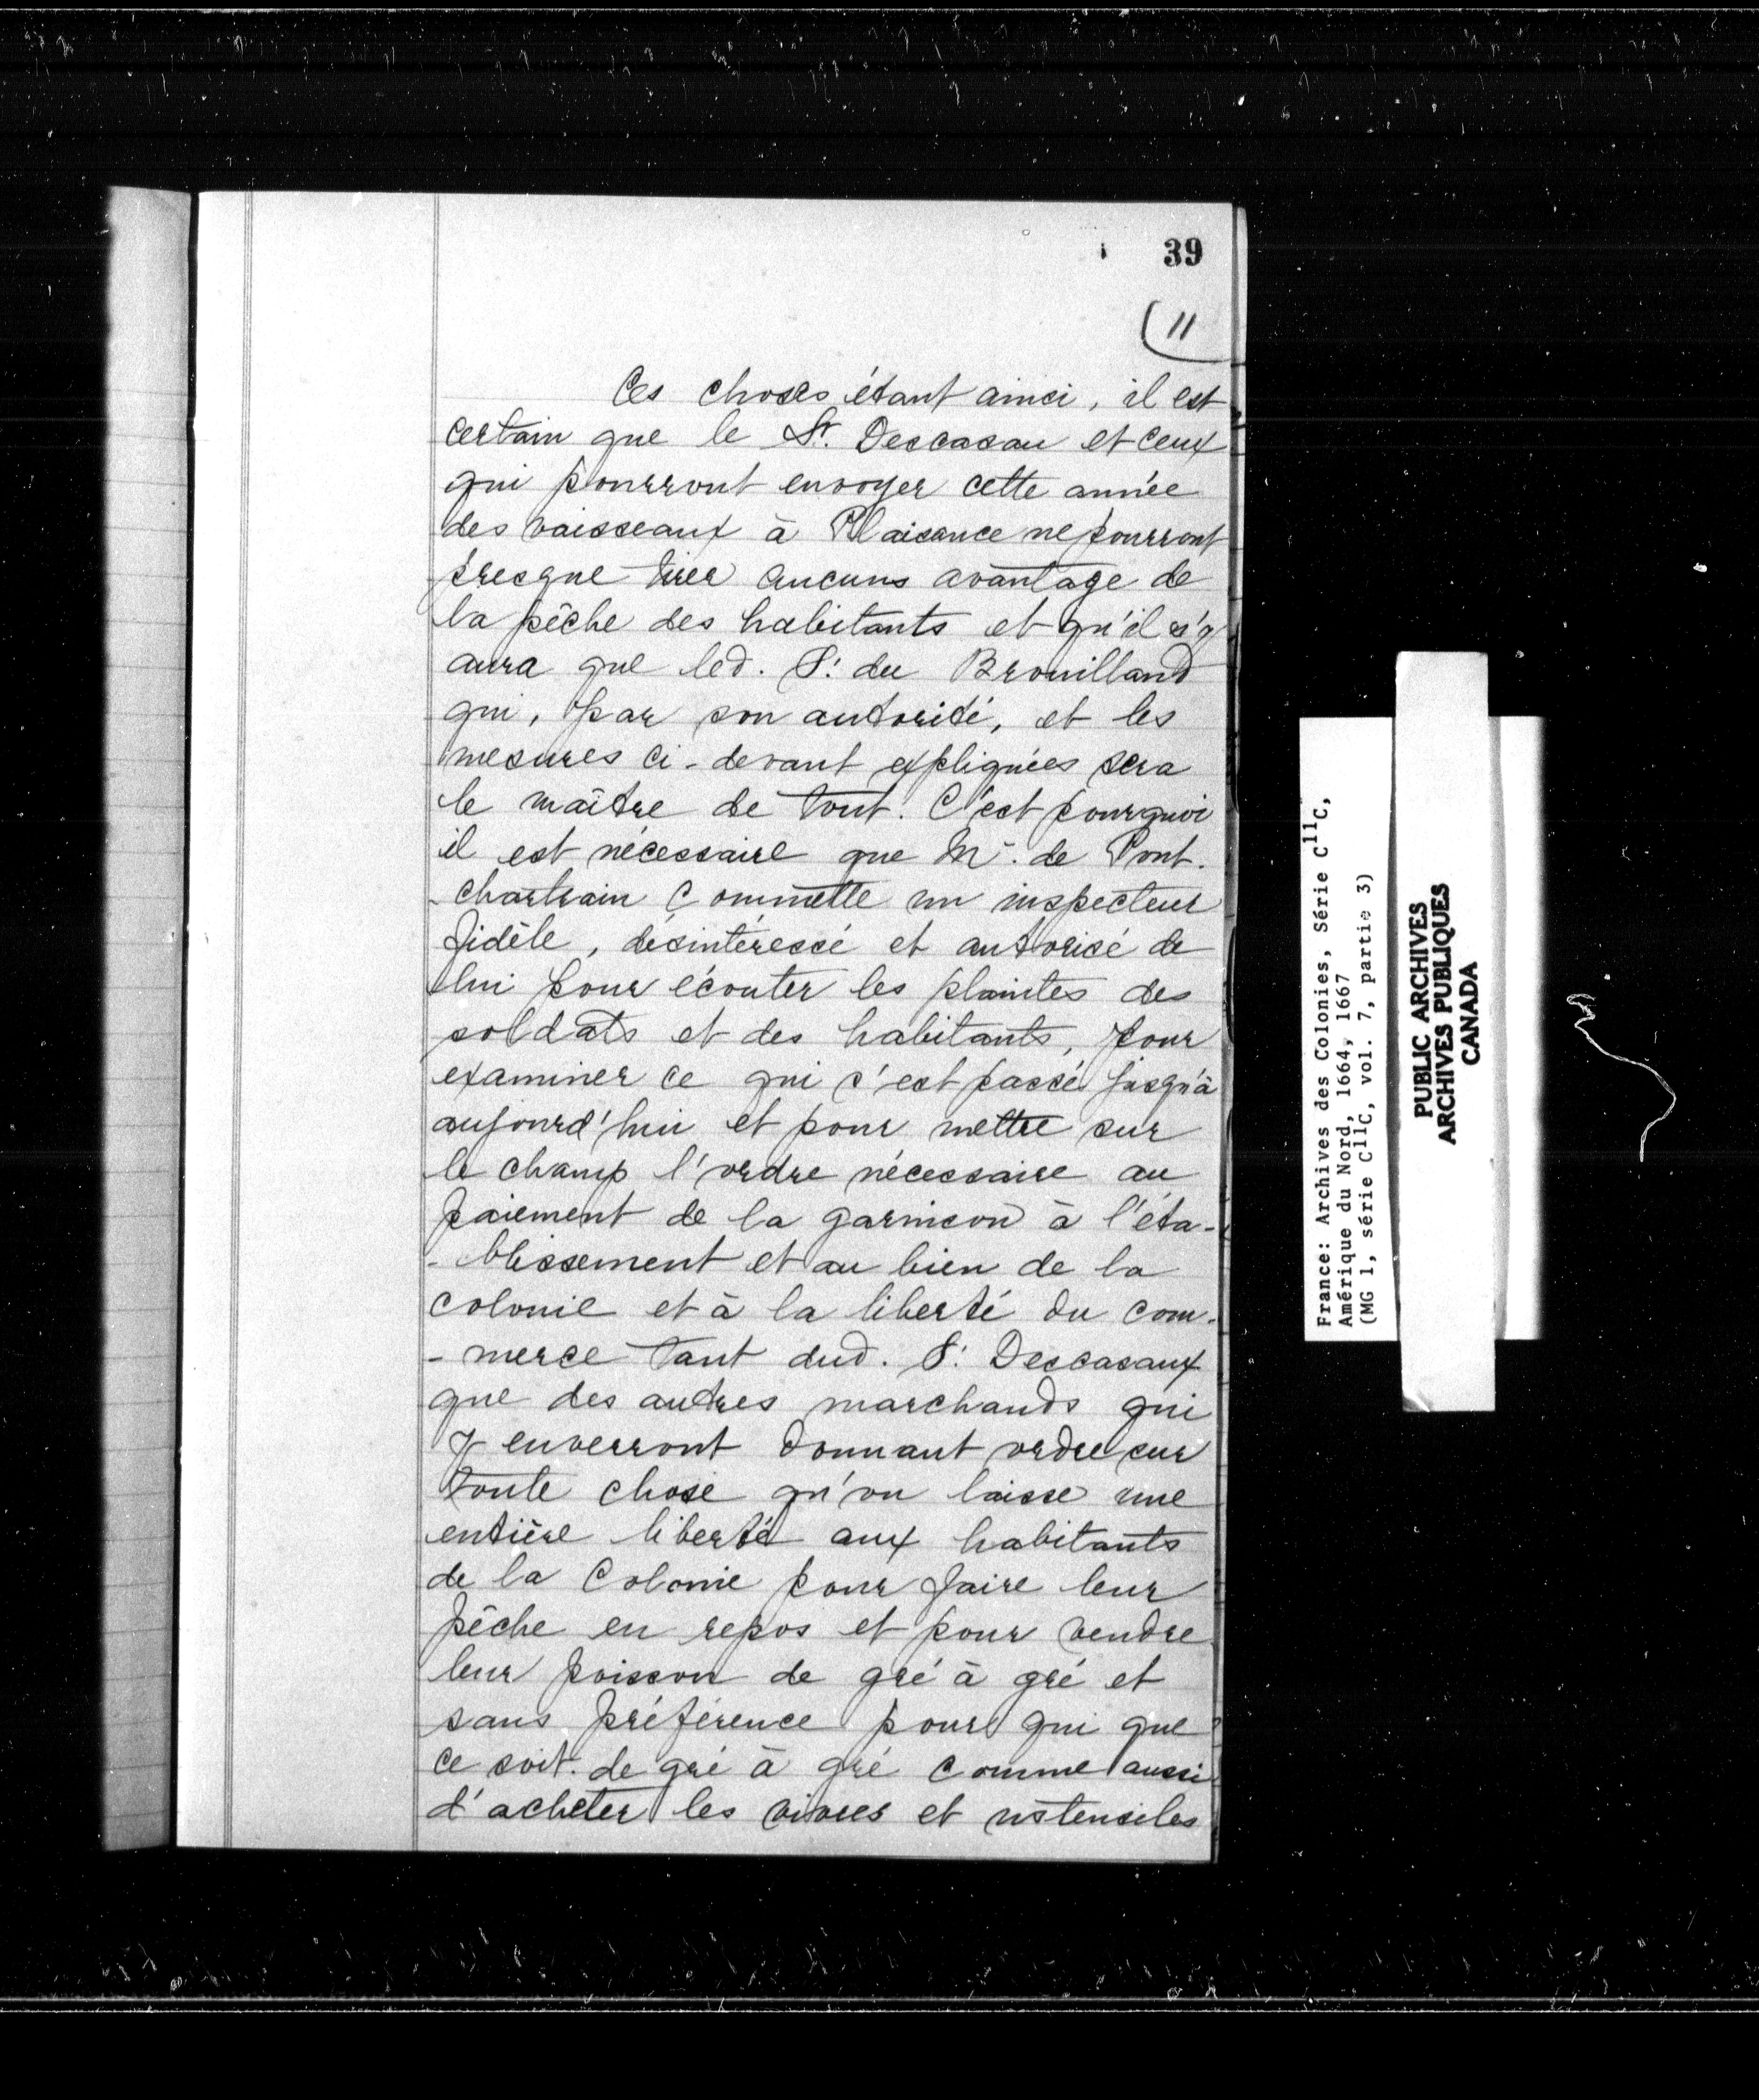 39
11
Ces choses étant ainsi, il est
certain que le Sr. Descasau et ceux
qui pourront envoyer cette année
des vaisseaux à Plaisance ne pourront
presque tirer aucuns avantage de
la pêche des habitants et qu'il n'y
aura que led. S: du Brouilland
qui, par son autorité, et les
mesures ci-devant expliquées sera
le maître de tout. C'est pourquoi
il est nécessaire que Mr. de Pont-
-chartrain commette un inspecteur
fidèle, désintéressé et autorisé de
lui pour écouter les plaintes des
soldats et des habitants, pour
examiner ce qui s'est passé jusqu'à
aujourd'hui et pour mettre sur
le champ l'ordre nécessaire au
paiement de la garnison à l'éta-
-blissement et au bien de la
colonie et à la liberté du com-
-merce tant dud. S: Descasaux
que des autres marchands qui
y enverront donnant ordre sur
toute chose qu'on laisse une
entière liberté aux habitants
de la Colonie pour faire leur
pêche en repos et pour vendre
leur poisson de gré à gré et
sans préférence pour qui que
ce soit. de gré à gré comme aussi
d'acheter les vivres et ustensiles
France: Archives des Colonies, Série C11C,
Amérique du Nord, 1664, 1667
(MG 1, série C11C, vol. 7, partie 3)
PUBLIC ARCHIVES
ARCHIVES PUBLIQUES
CANADA